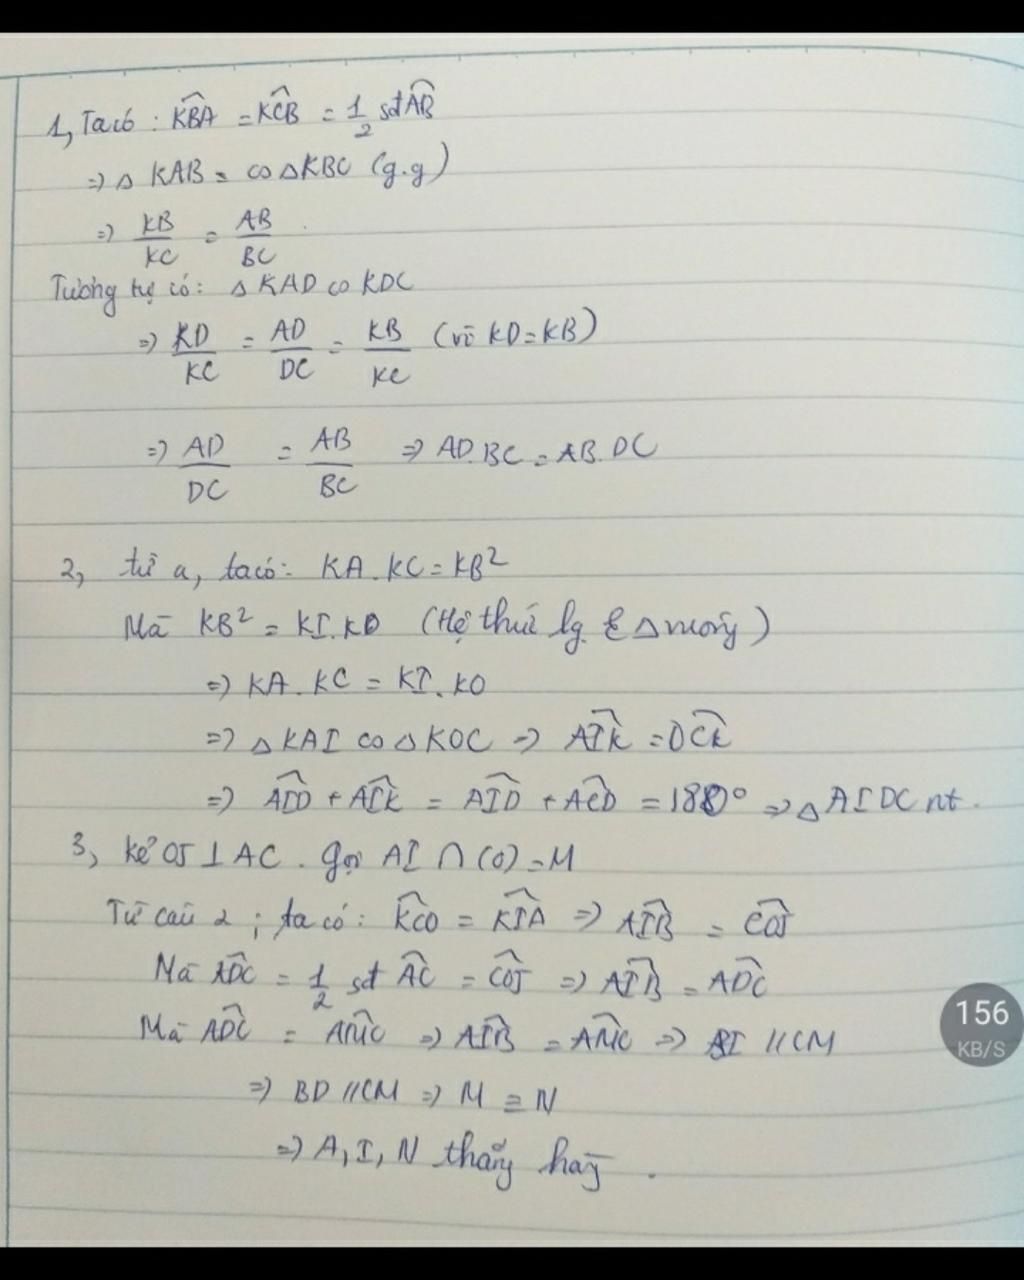 1, Ta có : KBA = KCB = 1/2 sđ AB
=> Δ KAB = ∽ ΔKBC (g.g)
=> KB/KC = AB/BC
Tương tự có: Δ KAD ∽ KDC
=> KD/KC = AD/DC = KB/KC (vì KD=KB)
=> AD/DC = AB/BC => AD.BC = AB.DC
2, từ a, ta có: KA.KC = KB²
Mà KB² = KI.KO (Hệ thức lg Δ vuông)
=> KA.KC = KI.KO
=> Δ KAI ∽ Δ KOC => AIK = OCK
=> AIO + AIK = AIO + ACO = 180° => Δ AIOC nt.
3, kẻ OJ ⊥ AC. gọi AI ∩ (O) = M
Từ câu 2; ta có: KCO = KIA => AIB = COJ
Mà ADC = 1/2 sđ AC = COJ => AIB = ADC
Mà ADC = AMC => AIB = AMC => BI // CM
=> BD // CM => M ≡ N
=> A, I, N thẳng hàng.
156
KB/S